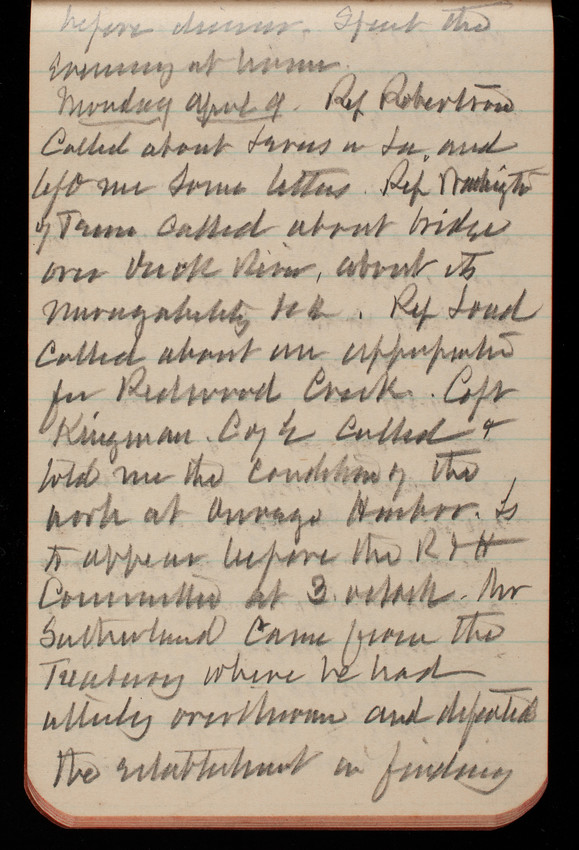 before dinner. Spent the
Evening at home.
Monday April 9. Rep Robertson
Called about Levees in La. and
left me some letters. Rep Washington
of Tenn called about bridge
over Duck River, about its
Navigability &c. Rep Loud
called about an appropriation
for Redwood Creek. Capt
Kingman C of E called &
told me the condition of the
work at Oswego Harbor. Is
to appear before the R & H
Committee at 3 o'clock. Mr
Sutherland came from the
Treasury where he had
utterly overthrown and defeated
the establishment in finding